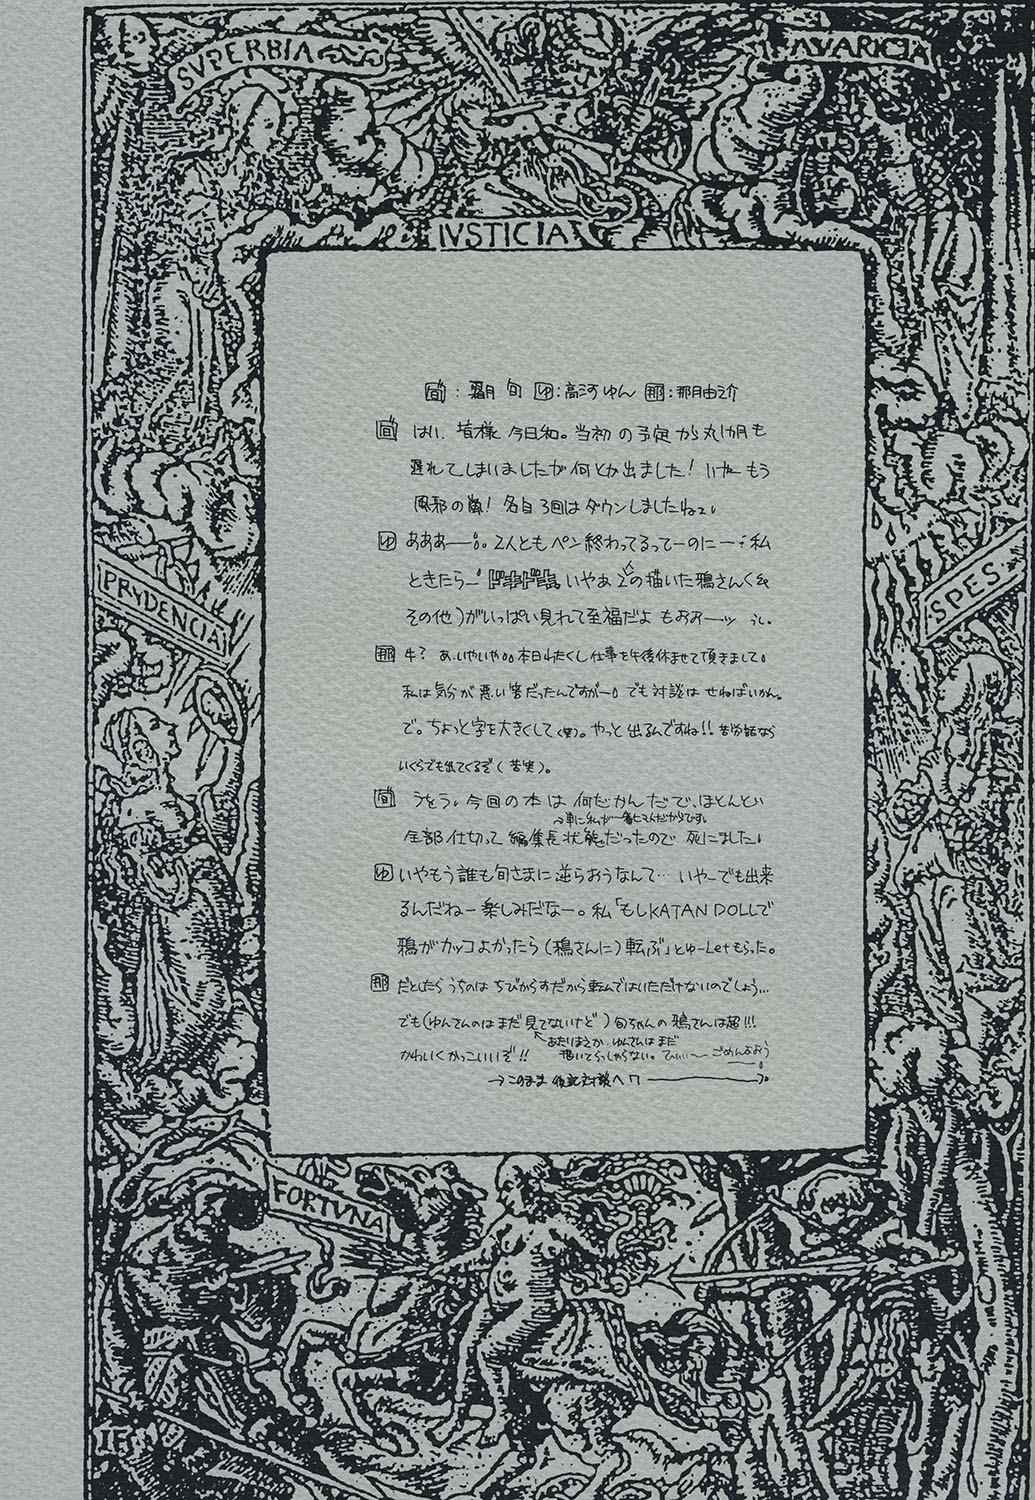 SVPERBIA
AVARICIA
IVSTICIA
PRVDENCIA
SPES
旬：霜月 旬 ゆ：高河ゆん 那：那月由之介
旬 はい、皆様 今日和。当初の予定から丸1ヵ月も
遅れてしまいましたが何とか出ました！いやーもう
風邪の嵐！各自3回はダウンしましたね。
ゆ あああー。2人ともペン終わってるってーのにー…私
ときたらー いやあ2人の描いた鴉さんく&
その他）がいっぱい見れて至福だよ もおおーッ
那 え？あ、いやいや。本日わたくし仕事を午後休ませて頂きまして。
私は気分が悪い筈だったんですがー。でも対談はせねばいかん。
で。ちょっと字を大きくして（笑）。やっと出るんですね!! 苦労話なら
いくらでも出てくるぞ（苦笑）。
旬 うをう。今回の本は何だかんだで、ほとんど
全部仕切って編集長状態だったので 死にました。
ゆ いやもう誰も旬さまに逆らおうなんて… いやーでも出来
るんだねー 楽しみだなー。私「もしKATAN DOLLで
鴉がカッコよかったら（鴉さんに）転ぶ」とゆーLetもらった。
那 だとしたら うちのは ちびからすだから転んではいただけないのでしょう…
でも（ゆんさんのはまだ見てないけど）旬ちゃんの鴉さんは超!!!
あたりまえか、ゆんさんはまだ
描いてらっしゃらない。 ごめんよおう
かわいくかっこいいぞ!!
→このまま後記対談へ
FORTVNA